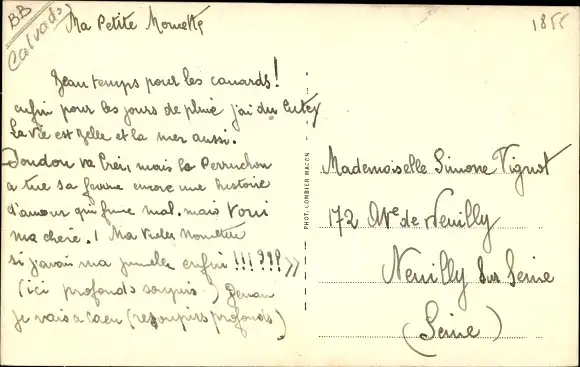 BB
Calvados
Ma Petite Momette
1855
Beau temps pour les canards !
enfin pour les jours de pluie j'ai du
La vie est Belle et la mer aussi.
Doudou va bien, mais la Perruchon
a tué sa femme encore une histoire
d'amour qui finie mal. mais voui
ma chère. ! Ma Momette
si j'avais ma jumelle enfin !!! ???
(ici profonds soupirs) Demain
je vais a Caen (resoupirs profonds)
PHOT. COMBIER MACON
Mademoiselle Simone Vignot
172 Ave de Neuilly
Neuilly Sur Seine
(Seine)